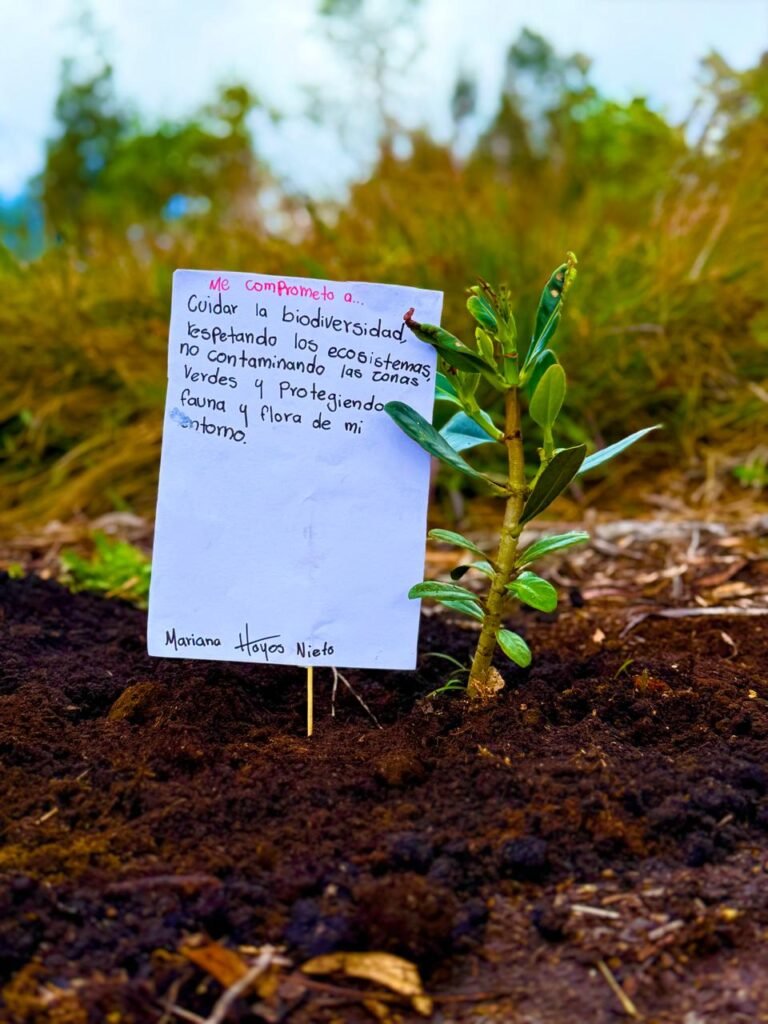 Me comprometo a...
Cuidar la biodiversidad,
respetando los ecosistemas,
no contaminando las zonas
verdes y Protegiendo
fauna y flora de mi
entorno.
Mariana Hoyos Nieto